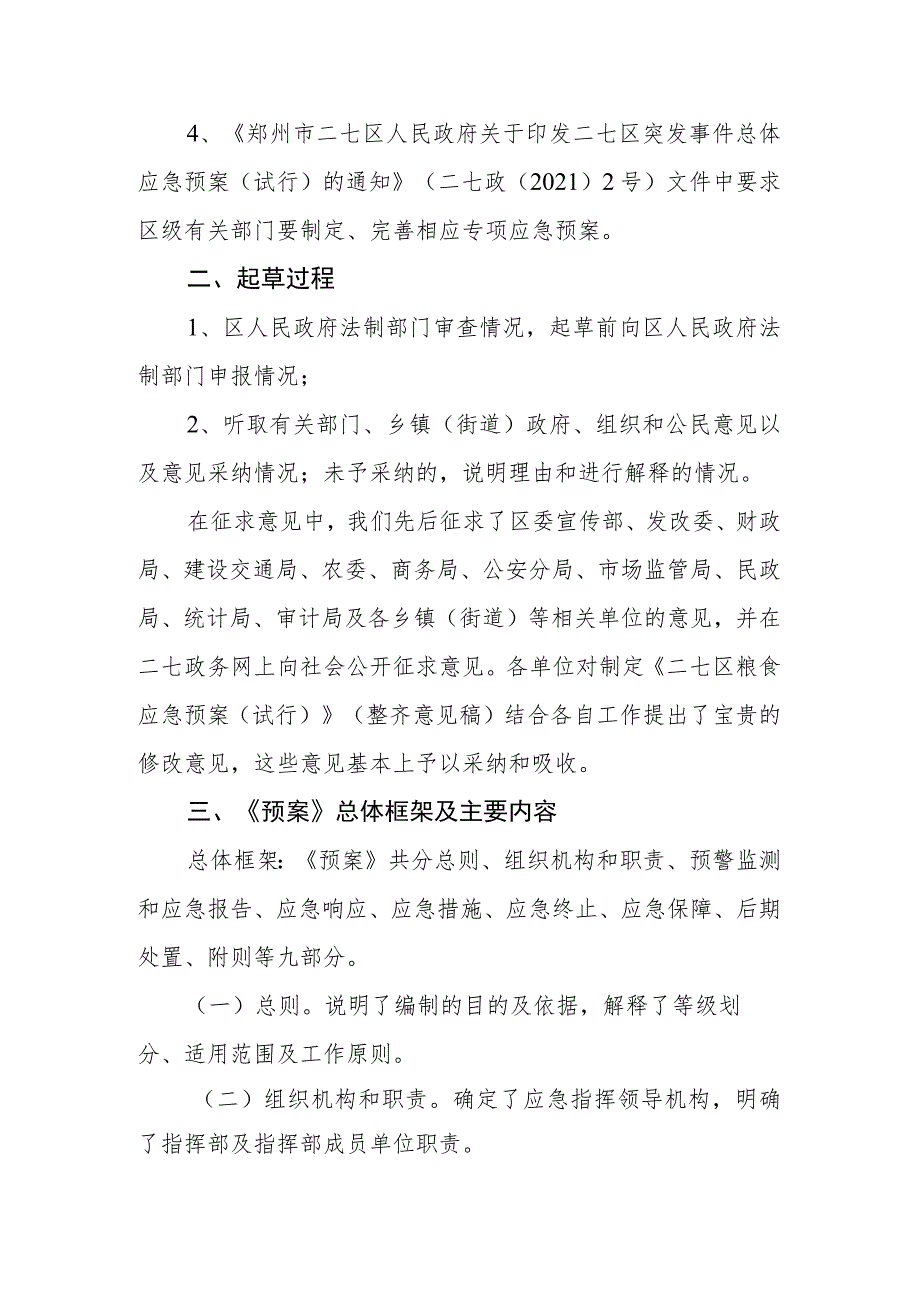 4、《郑州市二七区人民政府关于印发二七区突发事件总体
应急预案（试行）的通知》（二七政（2021）2号）文件中要求
区级有关部门要制定、完善相应专项应急预案。
二、起草过程
1、区人民政府法制部门审查情况，起草前向区人民政府法
制部门申报情况；
2、听取有关部门、乡镇（街道）政府、组织和公民意见以
及意见采纳情况；未予采纳的，说明理由和进行解释的情况。
在征求意见中，我们先后征求了区委宣传部、发改委、财政
局、建设交通局、农委、商务局、公安分局、市场监管局、民政
局、统计局、审计局及各乡镇（街道）等相关单位的意见，并在
二七政务网上向社会公开征求意见。各单位对制定《二七区粮食
应急预案（试行）》（整齐意见稿）结合各自工作提出了宝贵的
修改意见，这些意见基本上予以采纳和吸收。
三、《预案》总体框架及主要内容
总体框架：《预案》共分总则、组织机构和职责、预警监测
和应急报告、应急响应、应急措施、应急终止、应急保障、后期
处置、附则等九部分。
（一）总则。说明了编制的目的及依据，解释了等级划
分、适用范围及工作原则。
（二）组织机构和职责。确定了应急指挥领导机构，明确
了指挥部及指挥部成员单位职责。